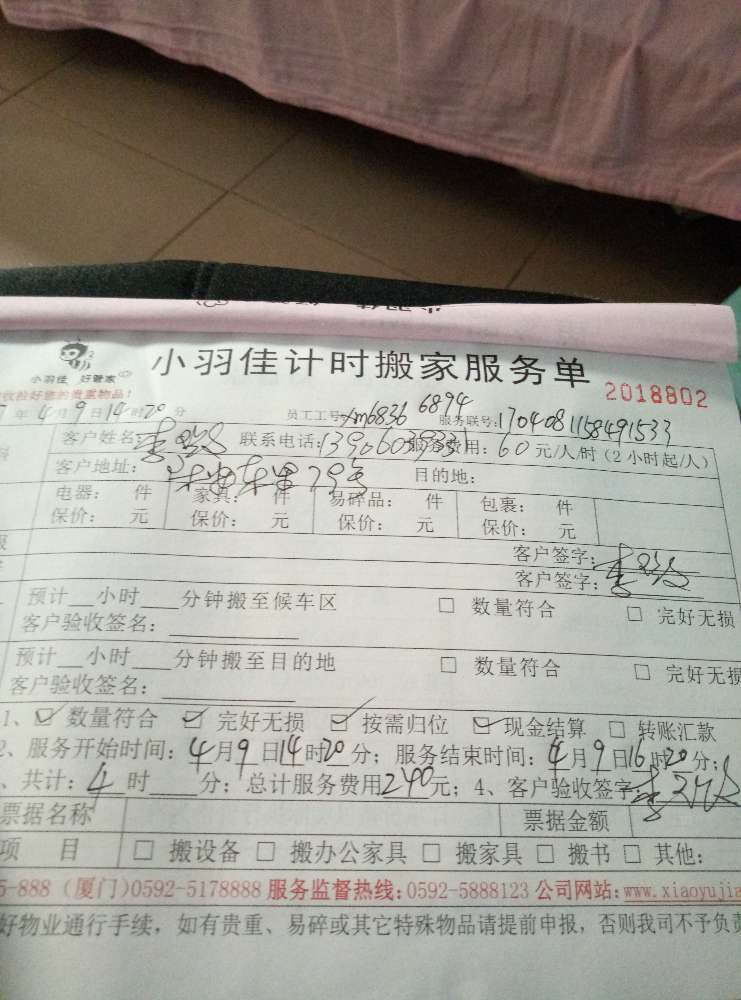 小羽佳 好管家
小羽佳计时搬家服务单 2018802
收拾好您的贵重物品!
年4月9日14时20分 员工工号:xm6836 6894 服务联号:1704081158491533
客户姓名: 联系电话: 服务费用:60元/人/时(2小时起/人)
客户地址: 79号 目的地:
电器: 件 家具: 件 易碎品: 件 包裹: 件
保价: 元 保价: 元 保价: 元 保价: 元
客户签字:
客户签字:
预计___小时___分钟搬至候车区 □ 数量符合 □ 完好无损
客户验收签名:
预计___小时___分钟搬至目的地 □ 数量符合 □ 完好无损
客户验收签名:
1、☑ 数量符合 ☑ 完好无损 ☑ 按需归位 ☑ 现金结算 □ 转账汇款
2、服务开始时间:4月9日14时20分;服务结束时间:4月9日16时20分;
、共计:4时___分;总计服务费用240元;4、客户验收签字:
票据名称 票据金额
项 目 □ 搬设备 □ 搬办公家具 □ 搬家具 □ 搬书 □ 其他:
5-888(厦门)0592-5178888 服务监督热线:0592-5888123 公司网站:www.xiaoyujia
好物业通行手续,如有贵重、易碎或其它特殊物品请提前申报,否则我司不予负责